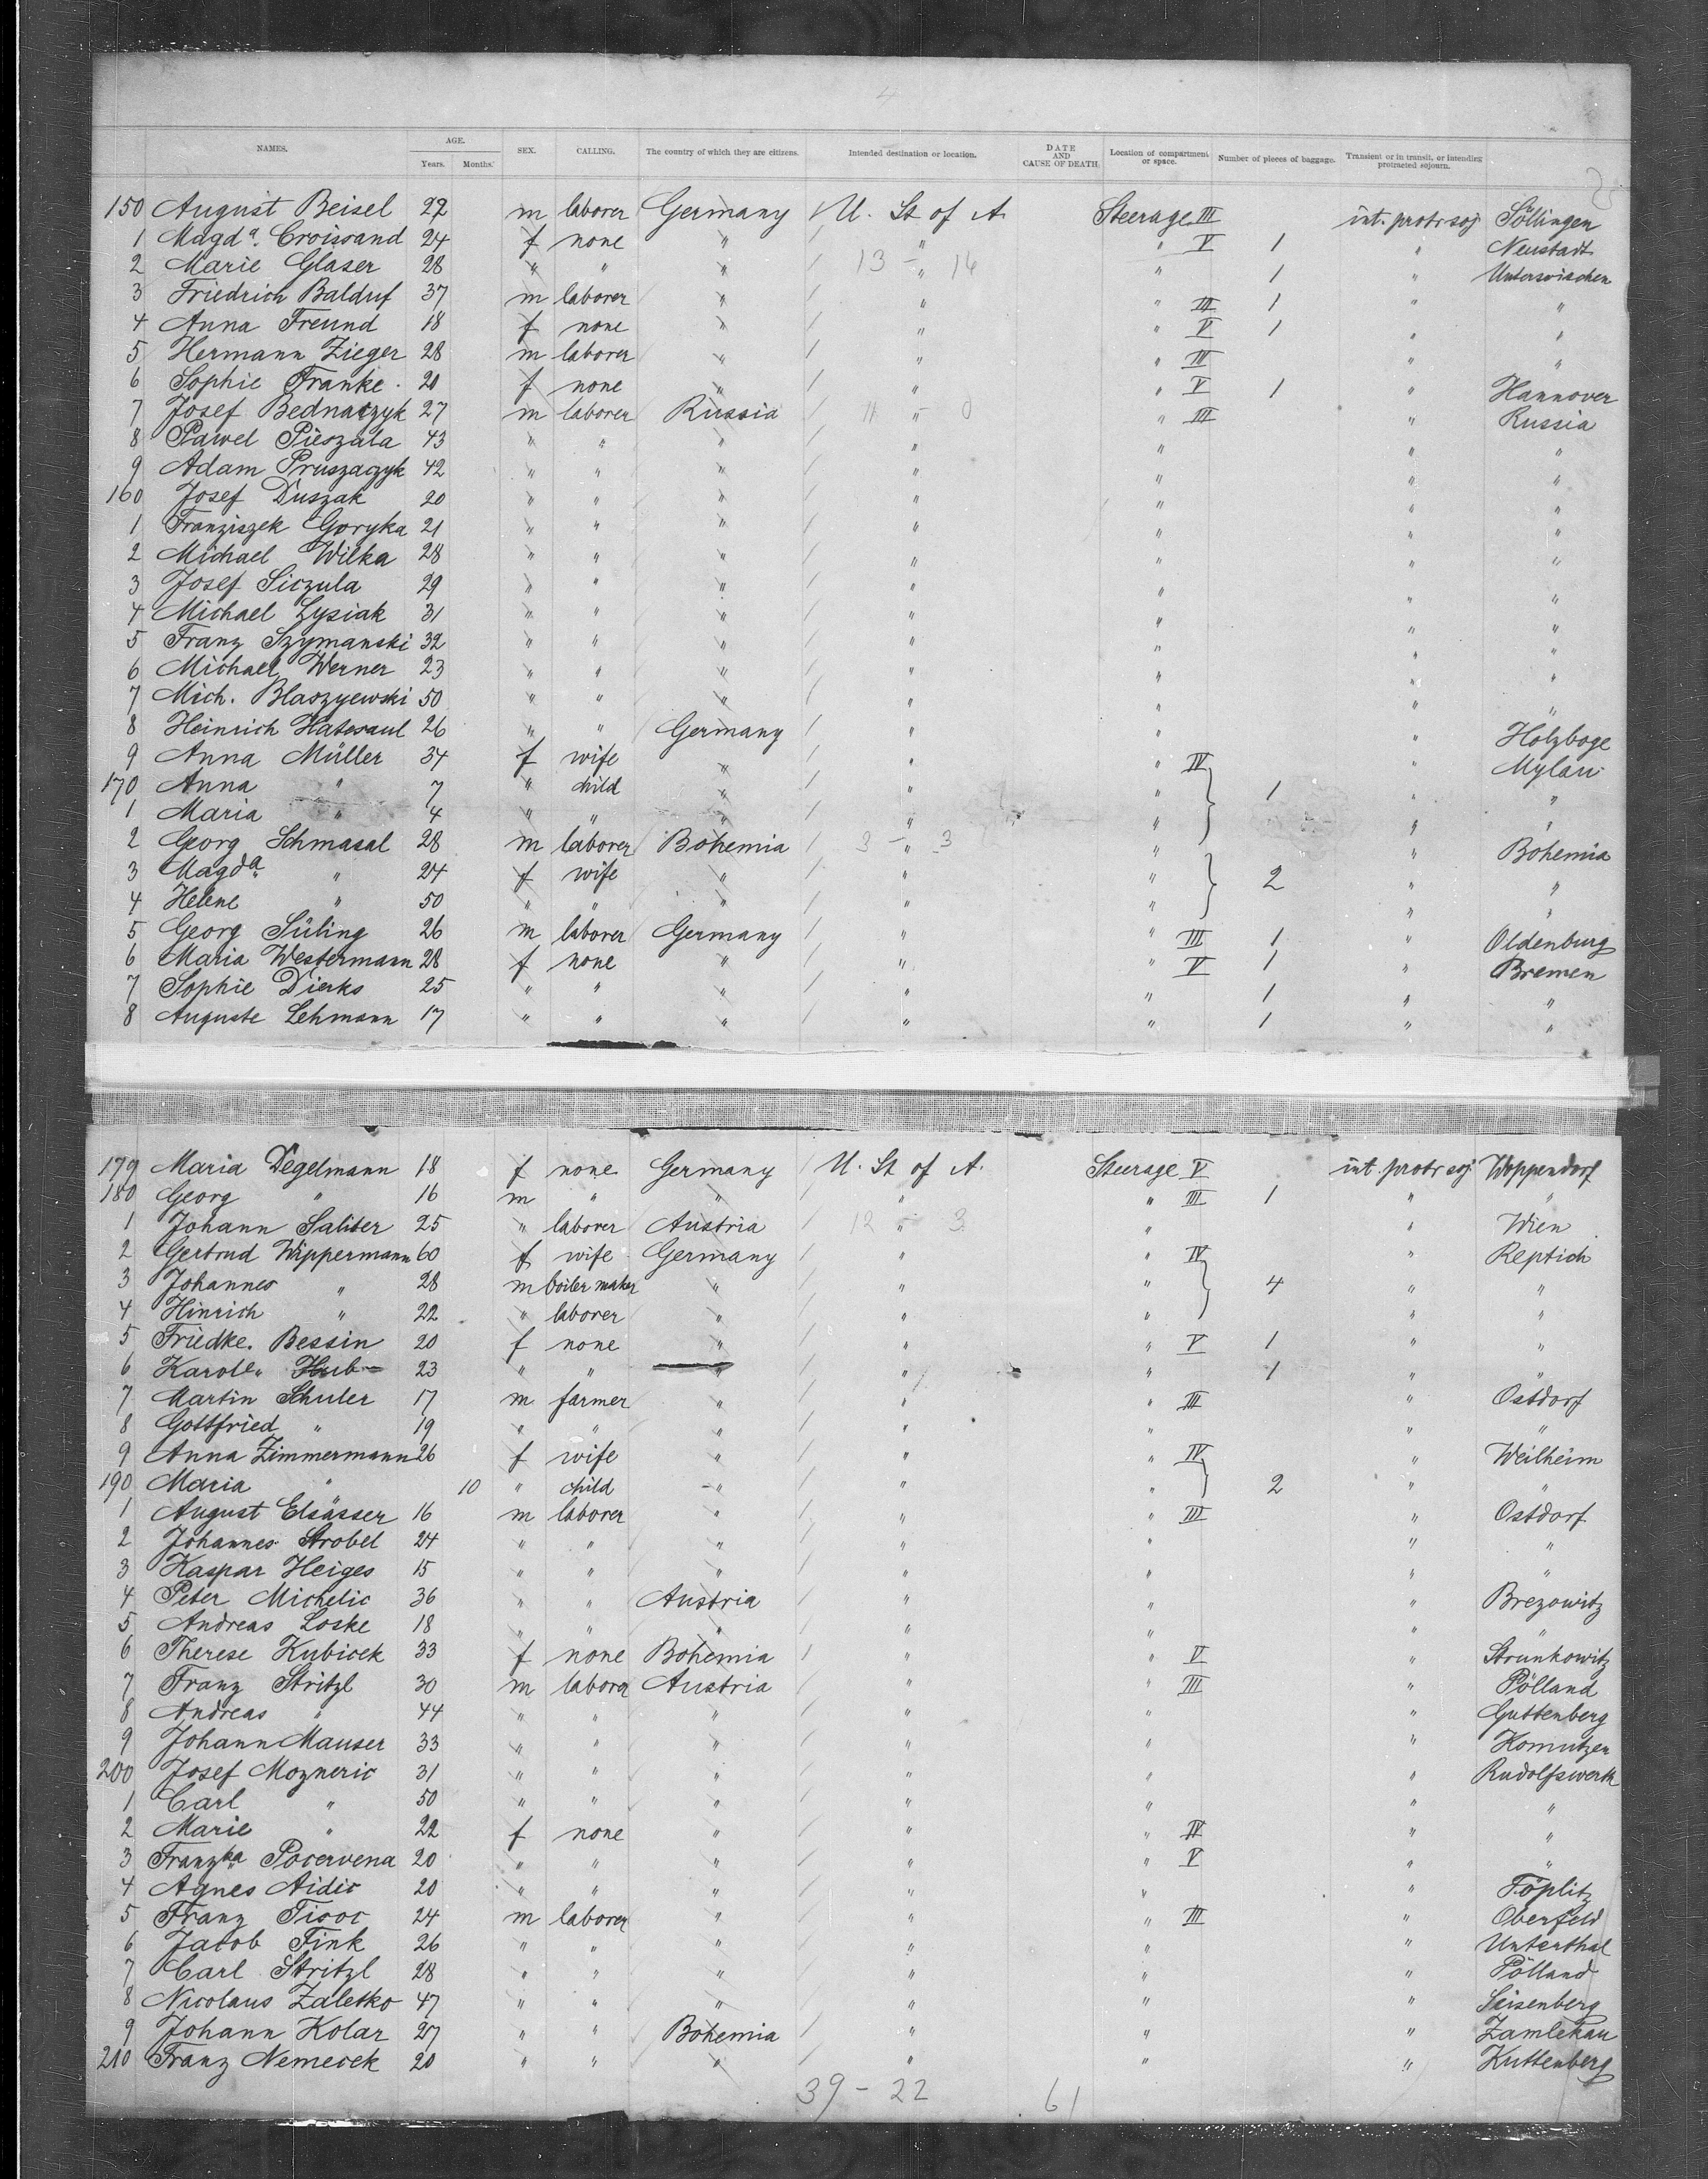 4
NAMES. AGE. Years. Months. SEX. CALLING. The country of which they are citizens. Intended destination or location. DATE AND CAUSE OF DEATH. Location of compartment or space. Number of pieces of baggage. Transient or in transit, or intending protracted sojourn.
150 August Beisel 22 m laborer Germany U. St of A. Steerage III int. protr soj Söllingen
1 Magda. Croissand 24 f none " " " V 1 " Neustadt
2 Marie Glaser 28 " " " 13 - " 14 " 1 " Unterwischen
3 Friedrich Balduf 37 m laborer " " " III 1 " "
4 Anna Freund 18 f none " " " V 1 " "
5 Hermann Zieger 28 m laborer " " " III " "
6 Sophie Franke 20 f none " " " V 1 " Hannover
7 Josef Bednarzyk 27 m laborer Russia 11 - 0 " III " Russia
8 Pawel Pieszala 43 " " " " " " "
9 Adam Pruszaczyk 42 " " " " " " "
160 Josef Duszak 20 " " " " " " "
1 Franziszek Goryka 21 " " " " " " "
2 Michael Wilka 28 " " " " " " "
3 Josef Siczula 29 " " " " " " "
4 Michael Lysiak 31 " " " " " " "
5 Franz Szymanski 32 " " " " " " "
6 Michael Werner 23 " " " " " " "
7 Mich. Blaszyewski 50 " " " " " " "
8 Heinrich Hatesaul 26 " " Germany " " " Holzboge
9 Anna Müller 34 f wife " " " IV " Mylau
170 Anna " 7 " child " " " 1 " "
1 Maria " 4 " " " " " " "
2 Georg Schmasal 28 m laborer Bohemia 3 - " 3 " " Bohemia
3 Magda. " 24 f wife " " " 2 " "
4 Helene " 50 " " " " " " "
5 Georg Süling 26 m laborer Germany " " III 1 " Oldenburg
6 Maria Westermann 28 f none " " " V 1 " Bremen
7 Sophie Dierks 25 " " " " " 1 " "
8 Auguste Lehmann 17 " " " " " 1 " "
179 Maria Degelmann 18 f none Germany U. St of A. Steerage V int. protr soj Woppendorf
180 Georg " 16 m " " " " III 1 " "
1 Johann Saliter 25 " laborer Austria 12 - 3 " " Wien
2 Gertrud Wippermann 60 f wife Germany " " IV " Reptich
3 Johannes " 28 m boiler maker " " " 4 " "
4 Hinrich " 22 " laborer " " " " "
5 Friedke. Bessin 20 f none " " " V 1 " "
6 Karole. Hub 23 " " " " " 1 " "
7 Martin Schuler 17 m farmer " " " III " Ostdorf
8 Gottfried " 19 " " " " " " "
9 Anna Zimmermann 26 f wife " " " IV " Weilheim
190 Maria " 10 " child " " " 2 " "
1 August Elsässer 16 m laborer " " " III " Ostdorf
2 Johannes Strobel 24 " " " " " " "
3 Kaspar Heiges 15 " " " " " " "
4 Peter Michelic 36 " " Austria " " " Brezowitz
5 Andreas Loske 18 " " " " " " "
6 Therese Kubicek 33 f none Bohemia " " V " Strunkowitz
7 Franz Stritzl 30 m laborer Austria " " III " Pölland
8 Andreas " 44 " " " " " " Guttenberg
9 Johann Mauser 33 " " " " " " Komutzen
200 Josef Mozneric 31 " " " " " " Rudolfswerth
1 Carl " 50 " " " " " " "
2 Marie " 22 f none " " " IV " "
3 Franzka Pocervena 20 " " " " " V " "
4 Agnes Aidic 20 " " " " " " Töplitz
5 Franz Tisoc 24 m laborer " " " III " Oberfeld
6 Jacob Fink 26 " " " " " " Unterthal
7 Carl Stritzl 28 " " " " " " Pölland
8 Nicolaus Zaletko 47 " " " " " " Seisenberg
9 Johann Kolar 27 " " Bohemia " " " Zamlekau
210 Franz Nemecek 20 " " " " " " Kuttenberg
39 - 22 61